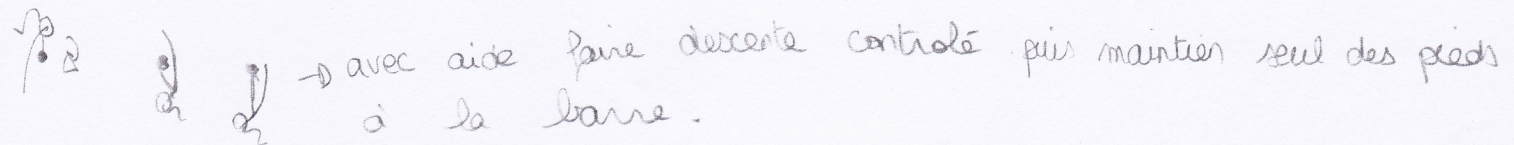 → avec aide faire descente controlé puis maintien seul des pieds
à la barre.